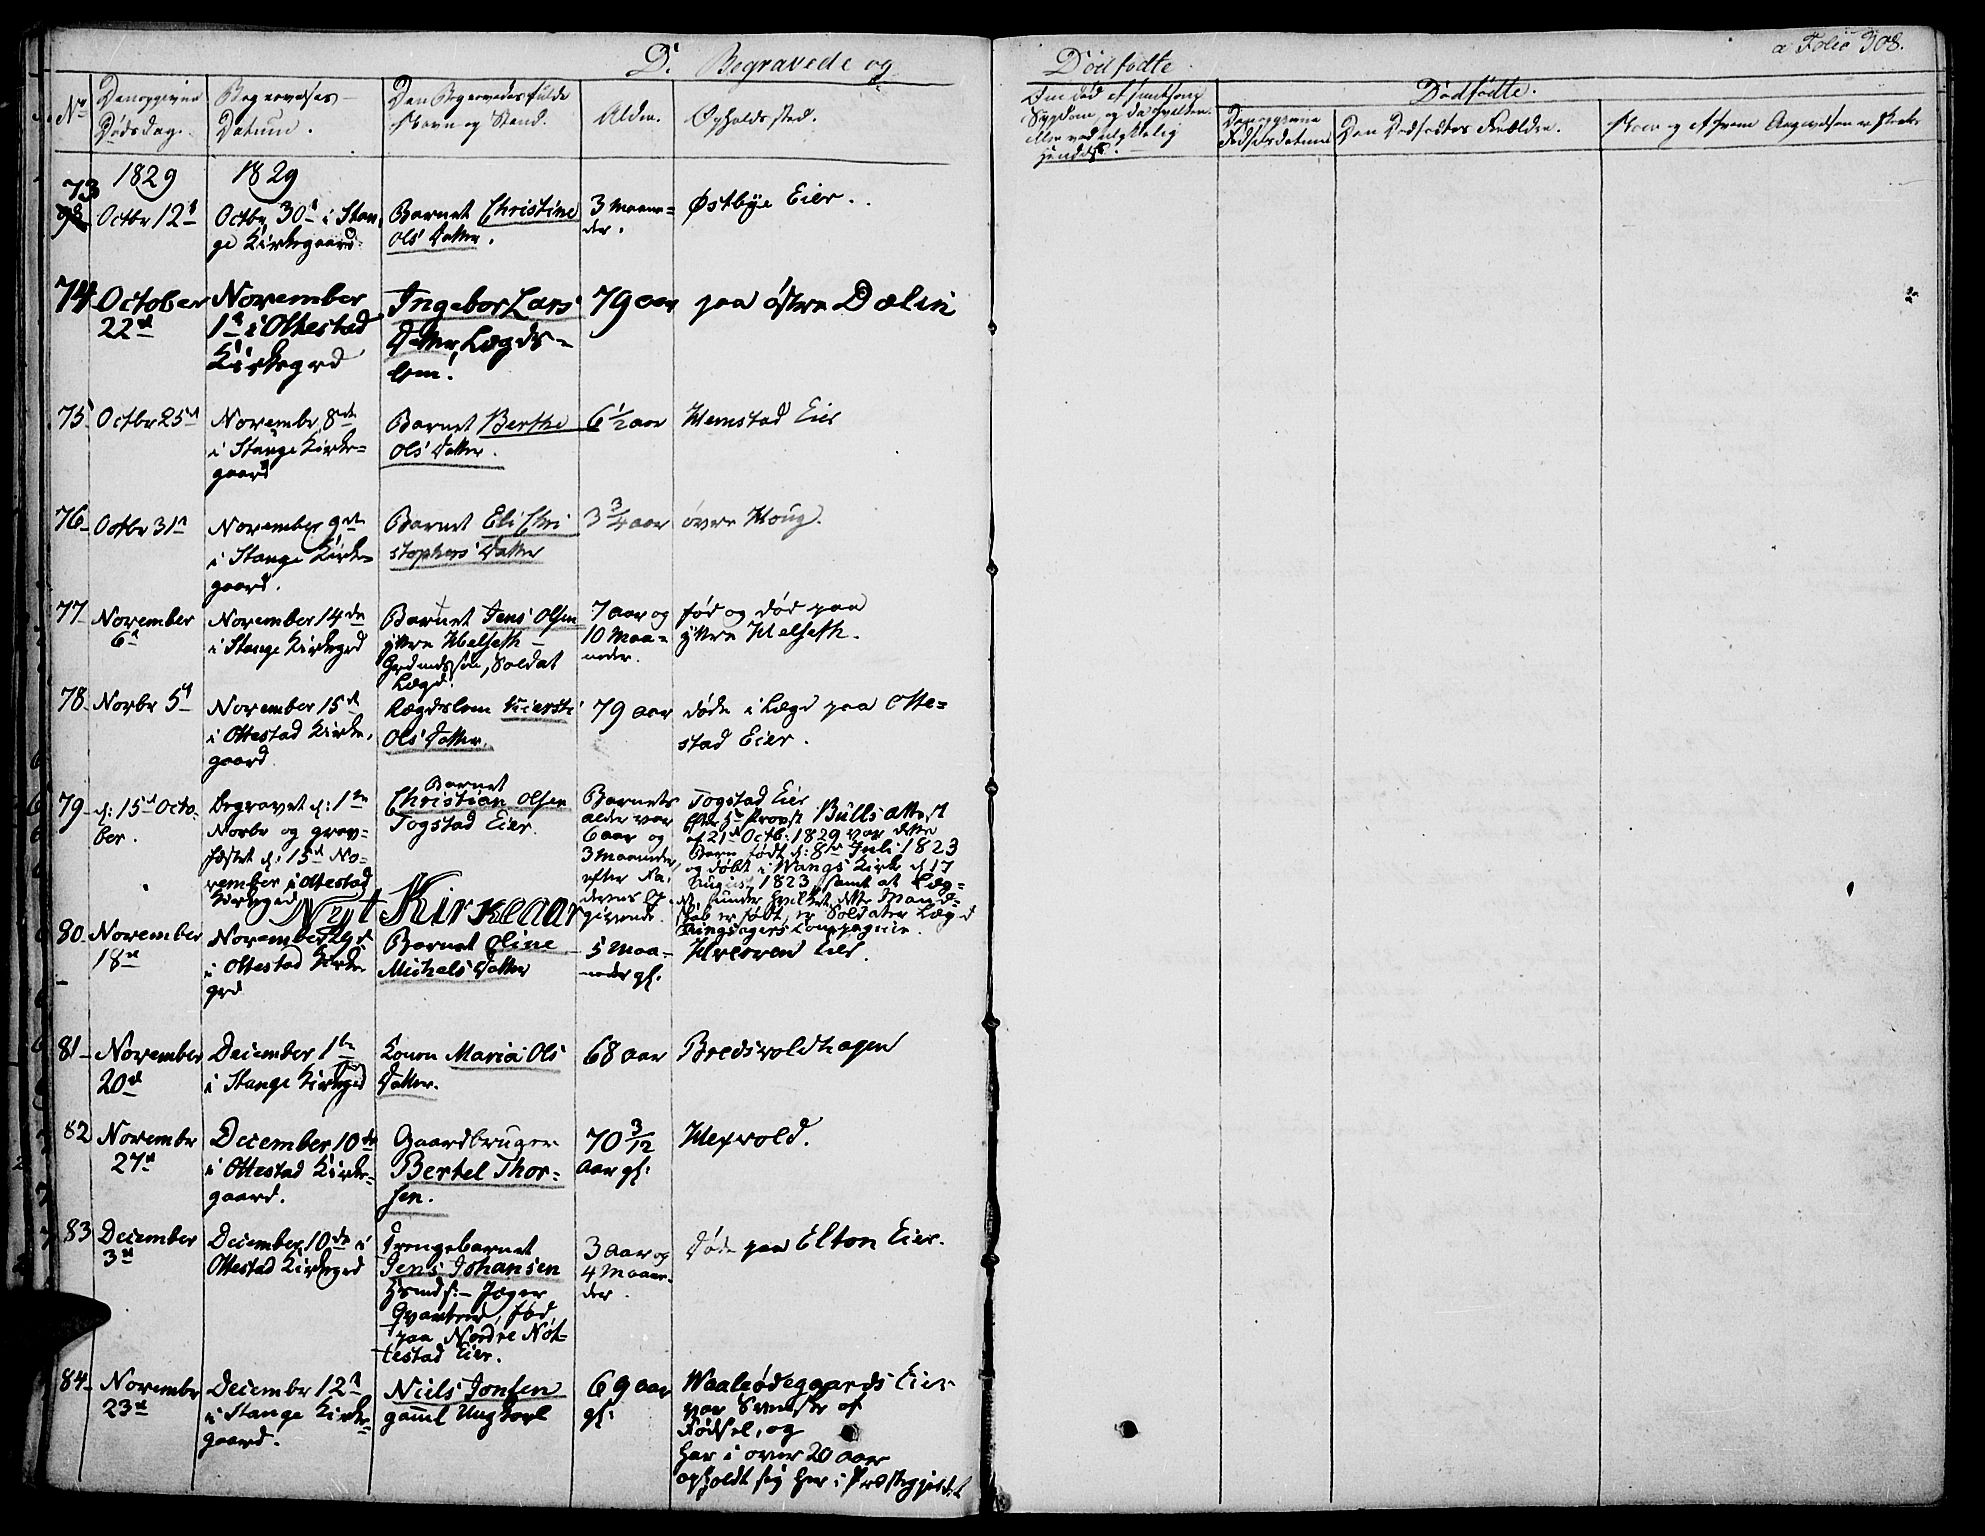 D. Begravede og Dödfödte.
a Folio 308.
No
Den opgivne Dödsdag.
Begravelses-Datum.
Den Begravedes fulde Navn og Stand.
Alder.
Opholdssted.
Dødfødte.
Den opgivne Fødselsdatum
Den Dødfødtes Forældre.
1829 1829
73 Octbr 12t Octbr 30t i Stange Kirkegaard. Barnet Christine Ols Datter. 3 Maaneder. Østbye Eier.
74 October 22d November 1t i Ottestad Kirkegrd Ingebor Lars Datter, Lægdslem. 79 aar paa østre Dælin
75 Octbr 25d Novembr 8de i Stange Kirkegaard Barnet Berthe Ols Datter. 6 1/2 aar Hemstad Eier
76 Octbr 31t November 9de i Stange Kirkegaard. Barnet Eli Christophers Datter 3 3/4 aar övre Houg.
77 November 6t November 14de i Stange Kirkegrd Barnet Jens Olsen yttre Helseth Grdmdssøn, Soldat Lægd. 7 aar og 10 Maaneder. fød og död paa yttre Helseth.
78 Novbr 5t November 15d i Ottestad Kirkegaard Lægdslem Kiersti Ols Datter. 79 aar döde i Lægd paa Ottestad Eier.
79 d: 15d October. Begravet d: 1te Novbr og gravfæstet d: 15d November i Ottestad Kirkegrd Barnet Christian Olsen Togstad Eier. Barnets alder var 6 aar og 3 Maaneder, efter Faderens Opgivende. Togstad Eier
efter Hr Provst Bulls Attest
af 21d Octb: 1829 var dette
Barn født d: 8de Juli 1823
og døbt i Wangs Kirke d 17
August 1823, samt at Lægdet, under hvilket dette Mandskab er født, er Soldater Lægd
Ringsagers Compagnie.
Nyt Kirkeaar
80 November 18d November 29d i Ottestad Kirkegrd Barnet Oline Michels Datter 5 Maaneder gl: Hverven Eier.
81 November 20d December 1te i Stange Kirkegrd Konen Maria Ols Datter. 68 aar Bredsvoldhagen
82 Novembr 27d December 10de i Ottestad Kirkegaard. Gaardbruger Bertel Thorsen. 70 3/12 aar gl: Hexvold.
83 December 3d December 10de i Ottestad Kirkegrd Drengebarnet Jens Johansen
paa Nordre Nöttestad Eier. 3 aar og 4 Maaneder. Døde paa Elton Eier.
84 Novembr 23d Decembr 12t i Stange Kirkegaard. Niels Jonsen gaml Ungkarl 69 aar gl: Waaleødegaards Eier
var Svensk af
Födsel, og
har i over 20 aar
opholdt sig her i Præstegjeldet